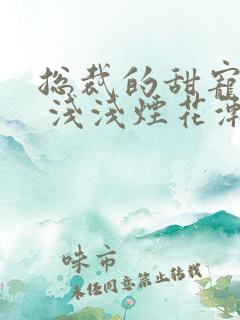 总裁的甜宠
浅浅煙花渖
味市
未经同意禁止转载